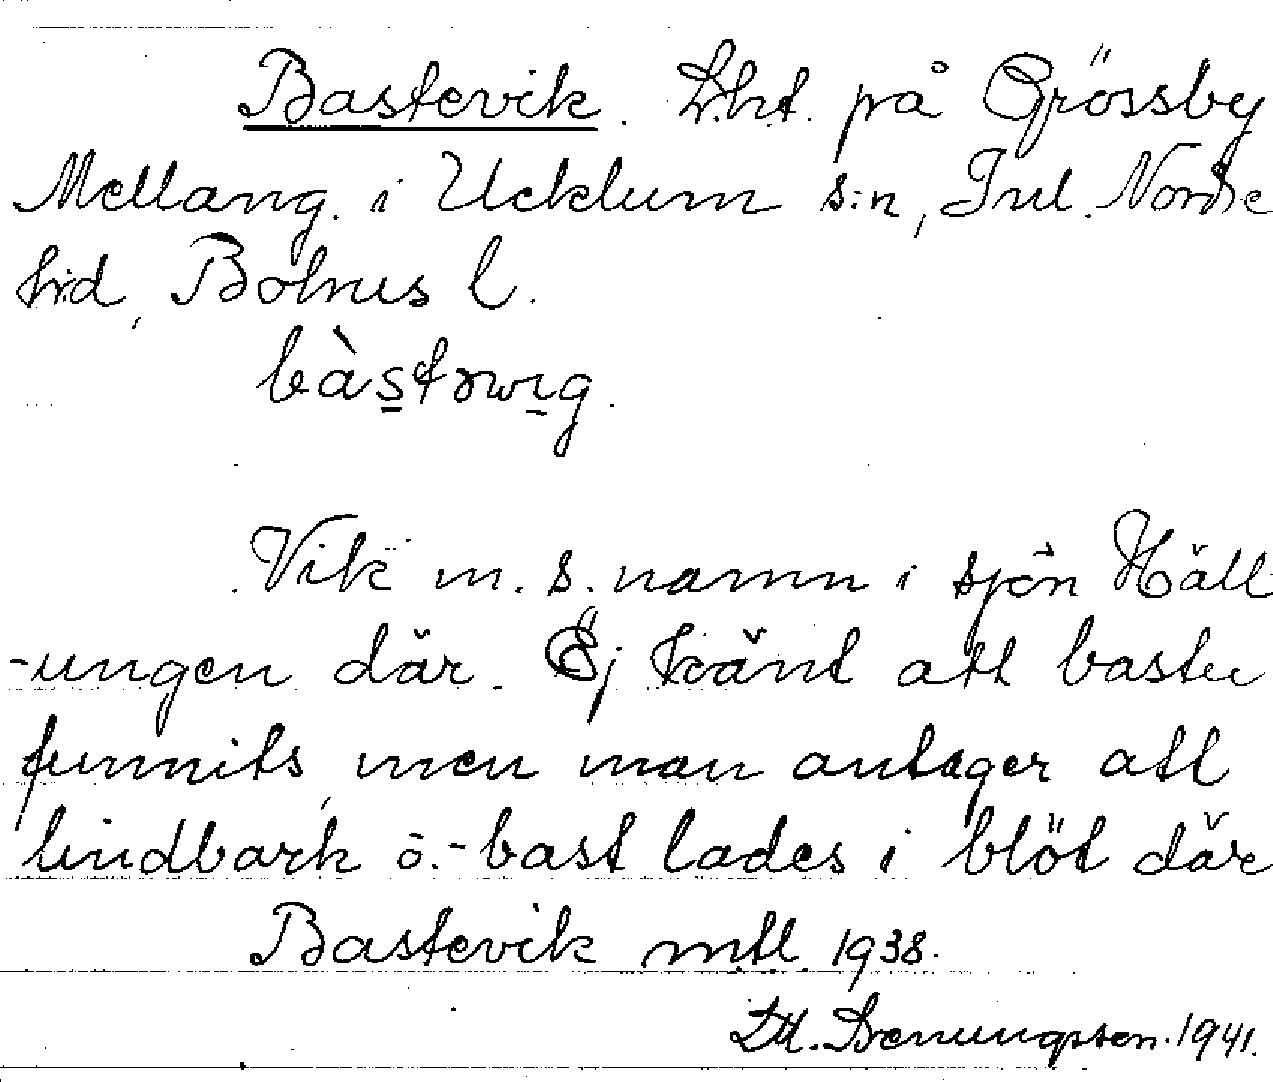 Bastevik. Lht. på Grössby
Mellang. i Ucklum s:n, Inl. Nordre
hd, Bohus l.
bàstəwıg.
Vik m. s. namn i sjön Häll-
-ungen där. Ej känt att bastu
funnits, men man antager att
lindbark o.-bast lades i blöt där
Bastevik mtl. 1938.
1941.